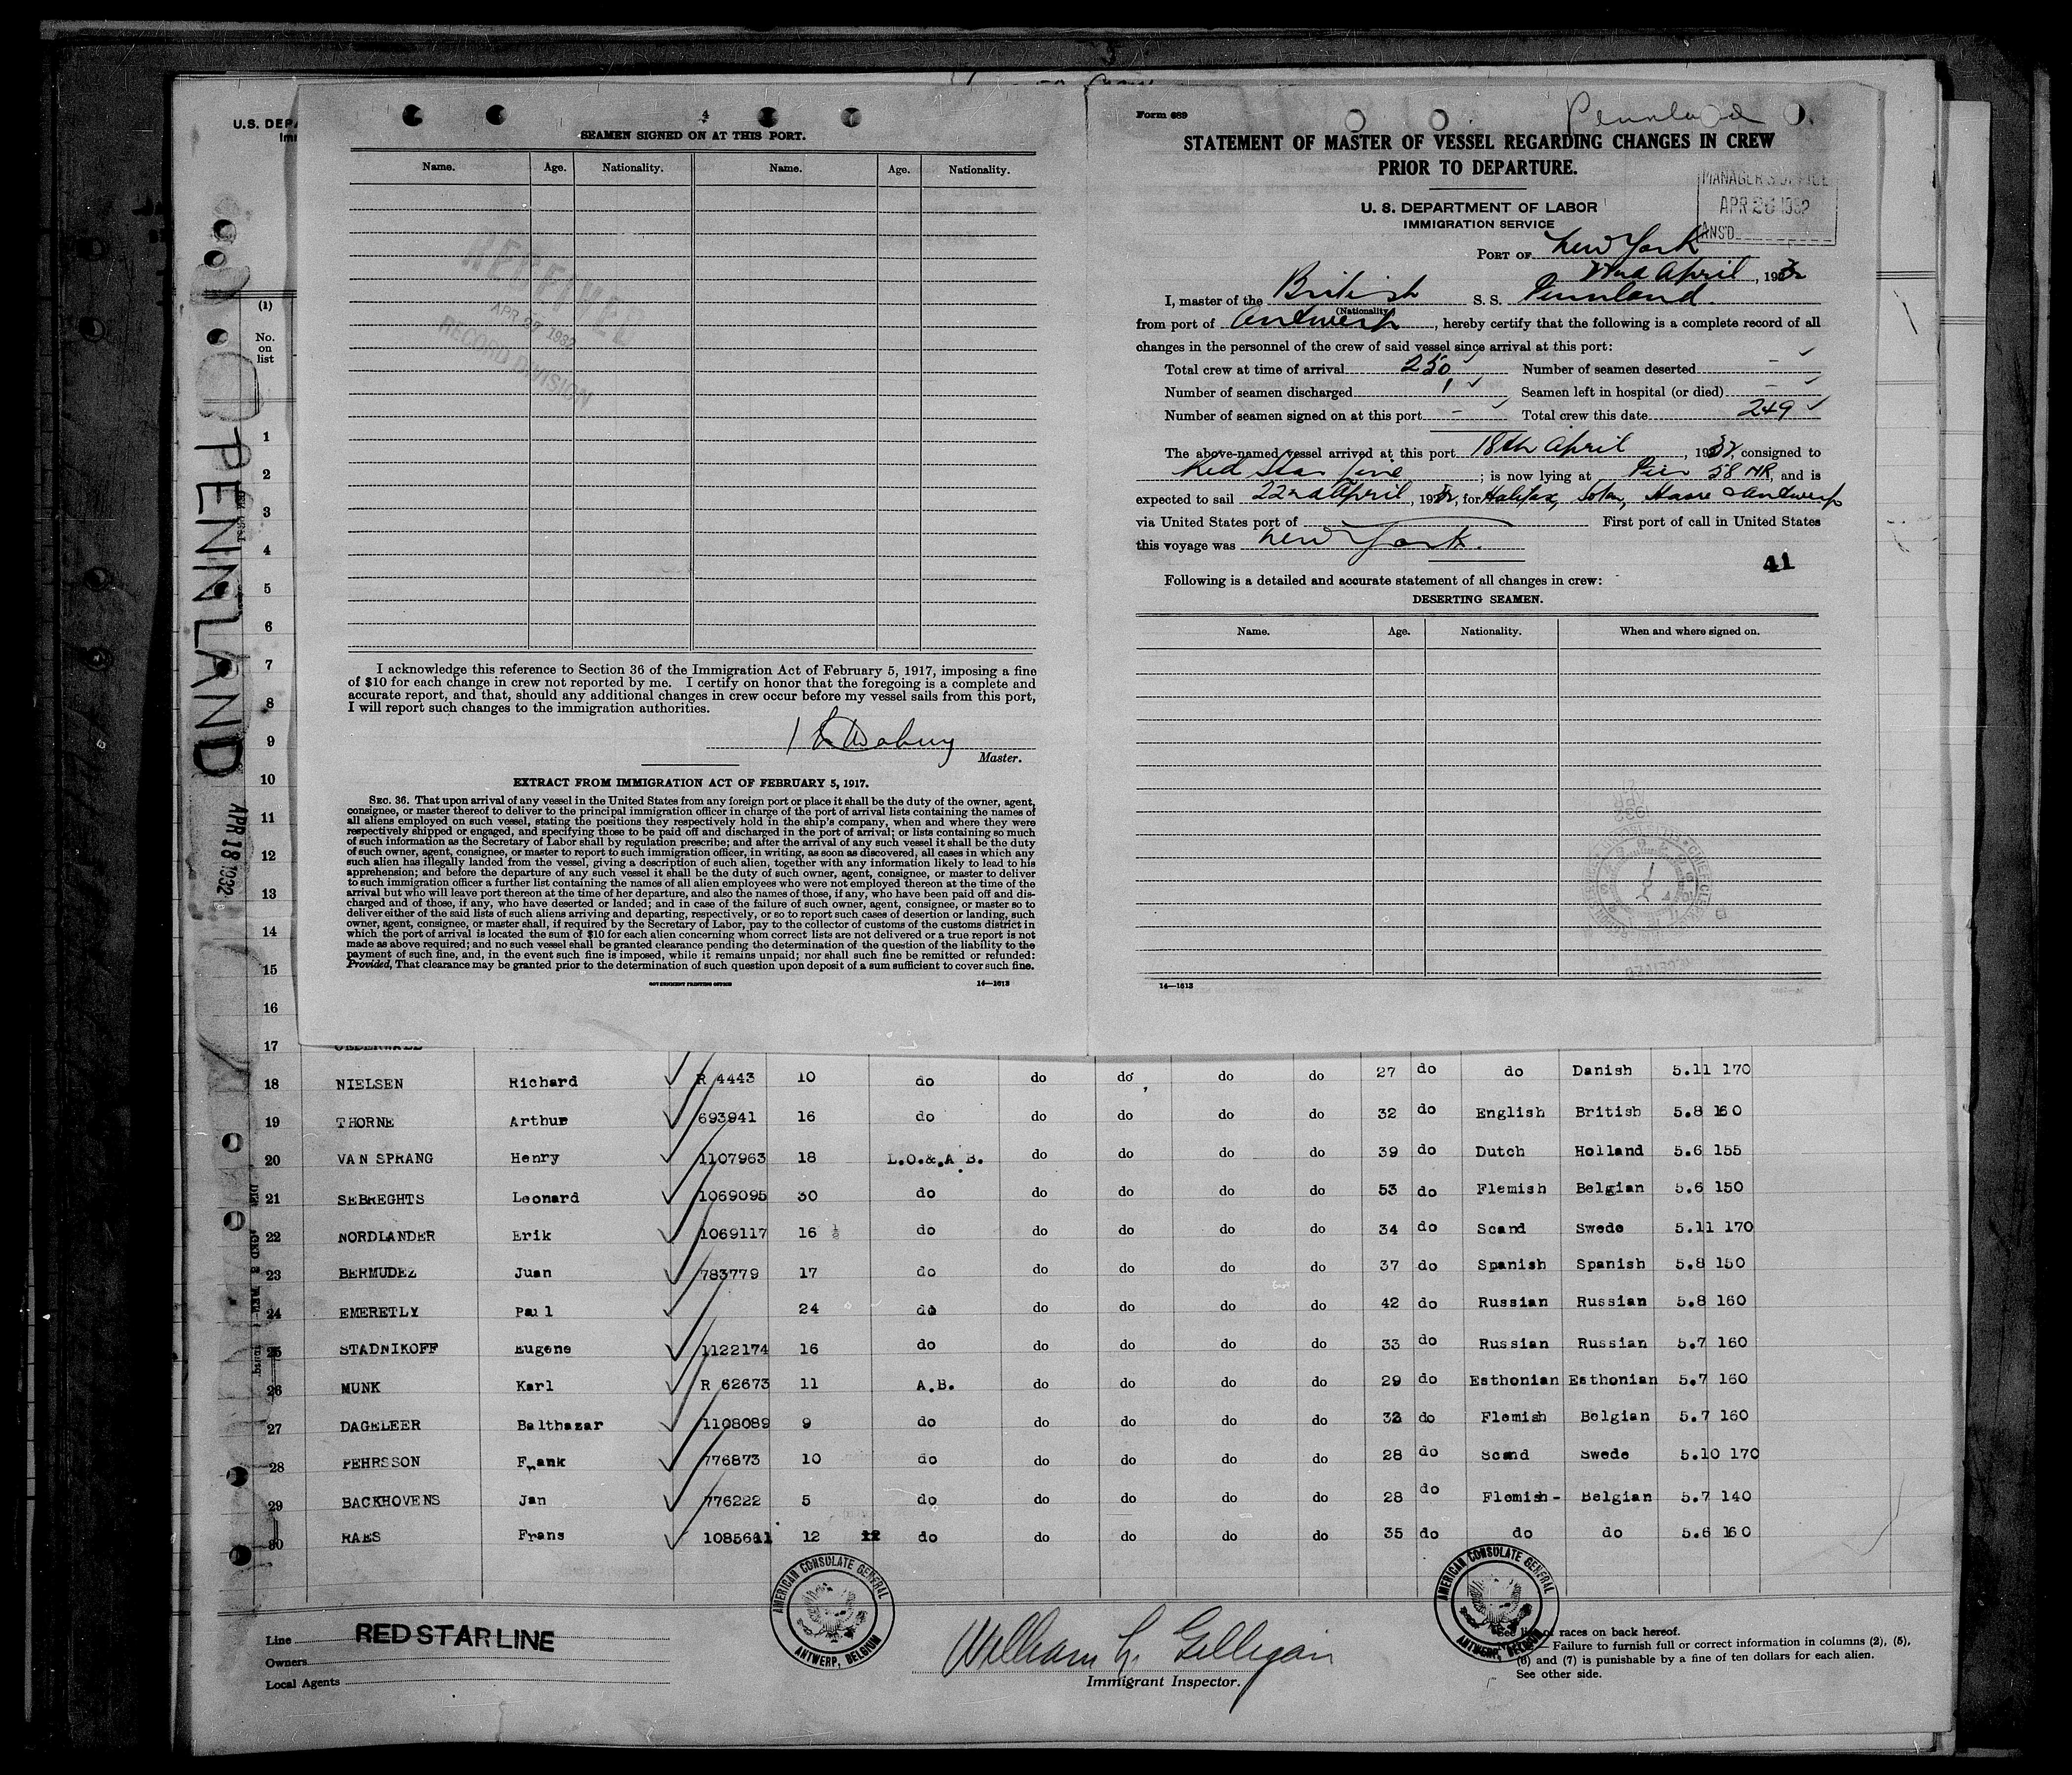 U.S. DEPA
Im
(1)
No.
on
list
1
2
3
4
5
6
7
8
9
10
11
12
13
14
15
16
PENNLAND
APR 18 1932
4
SEAMEN SIGNED ON AT THIS PORT.
Name. Age. Nationality. Name. Age. Nationality.
RECEIVED
APR 27 1932
RECORD DIVISION
I acknowledge this reference to Section 36 of the Immigration Act of February 5, 1917, imposing a fine
of $10 for each change in crew not reported by me. I certify on honor that the foregoing is a complete and
accurate report, and that, should any additional changes in crew occur before my vessel sails from this port,
I will report such changes to the immigration authorities.
Master.
EXTRACT FROM IMMIGRATION ACT OF FEBRUARY 5, 1917.
SEC. 36. That upon arrival of any vessel in the United States from any foreign port or place it shall be the duty of the owner, agent,
consignee, or master thereof to deliver to the principal immigration officer in charge of the port of arrival lists containing the names of
all aliens employed on such vessel, stating the positions they respectively hold in the ship's company, when and where they were
respectively shipped or engaged, and specifying those to be paid off and discharged in the port of arrival; or lists containing so much
of such information as the Secretary of Labor shall by regulation prescribe; and after the arrival of any such vessel it shall be the duty
of such owner, agent, consignee, or master to report to such immigration officer, in writing, as soon as discovered, all cases in which any
such alien has illegally landed from the vessel, giving a description of such alien, together with any information likely to lead to his
apprehension; and before the departure of any such vessel it shall be the duty of such owner, agent, consignee, or master to deliver
to such immigration officer a further list containing the names of all alien employees who were not employed thereon at the time of the
arrival but who will leave port thereon at the time of her departure, and also the names of those, if any, who have been paid off and dis-
charged and of those, if any, who have deserted or landed; and in case of the failure of such owner, agent, consignee, or master so to
deliver either of the said lists of such aliens arriving and departing, respectively, or so to report such cases of desertion or landing, such
owner, agent, consignee, or master shall, if required by the Secretary of Labor, pay to the collector of customs of the customs district in
which the port of arrival is located the sum of $10 for each alien concerning whom correct lists are not delivered or a true report is not
made as above required; and no such vessel shall be granted clearance pending the determination of the question of the liability to the
payment of such fine, and, in the event such fine is imposed, while it remains unpaid; nor shall such fine be remitted or refunded:
Provided, That clearance may be granted prior to the determination of such question upon deposit of a sum sufficient to cover such fine.
GOVERNMENT PRINTING OFFICE 14—1613
Form 689 Pennland
STATEMENT OF MASTER OF VESSEL REGARDING CHANGES IN CREW
PRIOR TO DEPARTURE.
MANAGER'S OFFICE
APR 26 1932
ANS'D
U. S. DEPARTMENT OF LABOR
IMMIGRATION SERVICE
PORT OF New York
22nd April, 1932
I, master of the British S. S. Pennland.
(Nationality)
from port of Antwerp, hereby certify that the following is a complete record of all
changes in the personnel of the crew of said vessel since arrival at this port:
Total crew at time of arrival 250 Number of seamen deserted -
Number of seamen discharged 1 Seamen left in hospital (or died) -
Number of seamen signed on at this port - Total crew this date 249
The above-named vessel arrived at this port 18th April, 1932, consigned to
Red Star Line; is now lying at Pier 58 NR, and is
expected to sail 22nd April, 1932, for Halifax, Soton, Havre & Antwerp
via United States port of First port of call in United States
this voyage was New York.
41
Following is a detailed and accurate statement of all changes in crew:
DESERTING SEAMEN.
Name. Age. Nationality. When and where signed on.
14—1613
17
18 NIELSEN Richard R 4443 10 do do do do do 27 do do Danish 5.11 170
19 THORNE Arthur 693941 16 do do do do do 32 do English British 5.8 160
20 VAN SPRANG Henry 1107963 18 L.O.&.A B. do do do do 39 do Dutch Holland 5.6 155
21 SEBREGHTS Leonard 1069095 30 do do do do do 53 do Flemish Belgian 5.6 150
22 NORDLANDER Erik 1069117 16 ½ do do do do do 34 do Scand Swede 5.11 170
23 BERMUDEZ Juan 783779 17 do do do do do 37 do Spanish Spanish 5.8 150
24 EMERETLY Paul 24 do do do do do 42 do Russian Russian 5.8 160
25 STADNIKOFF Eugene 1122174 16 do do do do do 33 do Russian Russian 5.7 160
26 MUNK Karl R 62673 11 A.B. do do do do 29 do Esthonian Esthonian 5.7 160
27 DAGELEER Balthazar 1108089 9 do do do do do 32 do Flemish Belgian 5.7 160
28 PEHRSSON Frank 776873 10 do do do do do 28 do Scand Swede 5.10 170
29 BACKHOVENS Jan 776222 5 do do do do do 28 do Flemish- Belgian 5.7 140
30 RAES Frans 1085611 12 12 do do do do do 35 do do do 5.6 160
AMERICAN CONSULATE GENERAL
ANTWERP, BELGIUM
AMERICAN CONSULATE GENERAL
ANTWERP, BELGIUM
Line RED STAR LINE
Owners
Local Agents
William L. Gilligan
Immigrant Inspector.
See list of races on back hereof.
— Failure to furnish full or correct information in columns (2), (5),
(6) and (7) is punishable by a fine of ten dollars for each alien.
See other side.